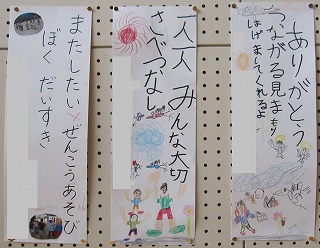 ありがとう
つながる見まもり
はげましてくれるよ
一人一人みんな大切
さべつなし
またしたいぜんこうあそび
ぼくだいすき